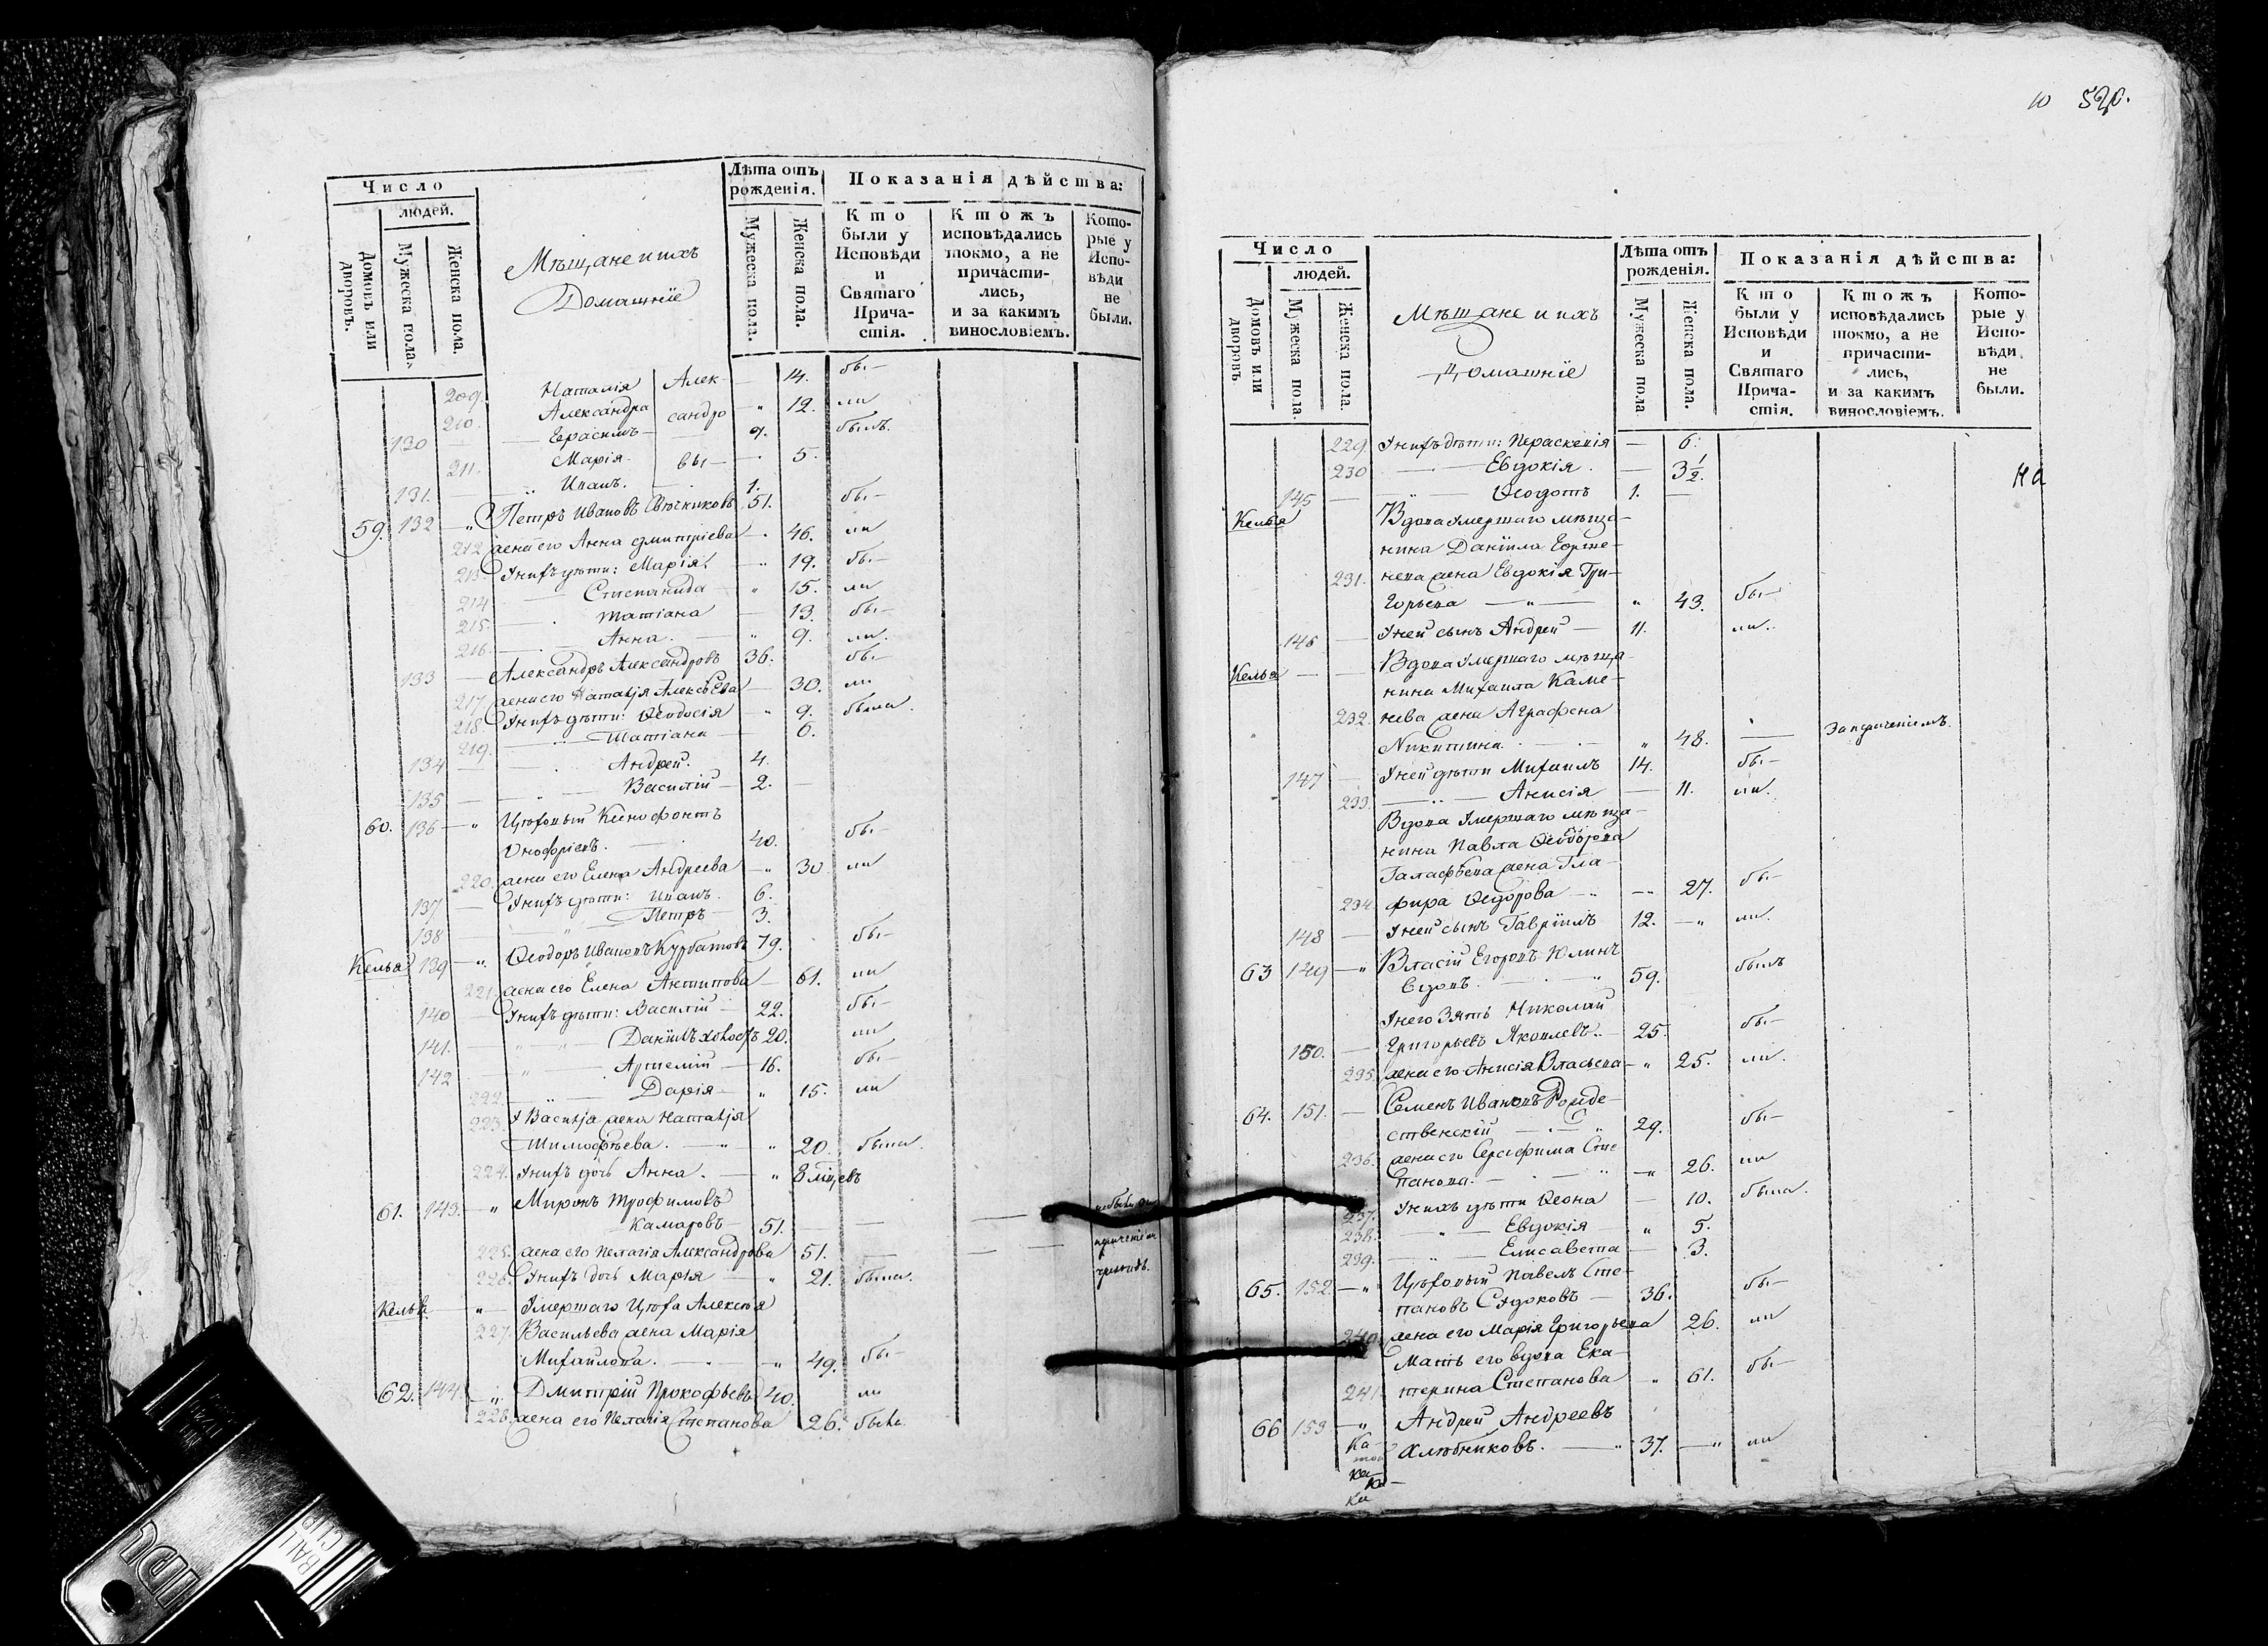 Число
людей.
Домовъ или дворовъ.
Мужеска пола.
Женска пола.
Мѣщане и ихъ
Домашніе
Лѣта отъ рожденія.
Мужеска пола.
Женска пола.
Показанія дѣйства:
Кто были у Исповѣди и Святаго Прича- стія.
Ктожъ исповѣдались токмо, а не причасти- лись, и за какимъ винословіемъ.
Кото- рые у Испо- вѣди не были.
209. Наталія Алек- — 14. бы-
210. Александра сандро — " 12. ли
130 — Герасимъ — 9. былъ.
211. Марія вы — 5.
131. — " Иванъ. 1.
59. 132 — " Петръ Ивановъ 51. бы-
212 жена его Анна Дмитріева — 46. ли
213. У нихъ дѣти: Марія. — " 19. бы-
214 — Степанида " 15. ли
215. — Татіана — 13. бы-
216. — Анна. — " 9. ли.
133 — Александръ Александровъ 36. бы-
217 жена его Наталія Алексѣева — 30. ли
218. У нихъ дѣти: Ѳеодосія — " 9. была.
219. — Татіана — 6.
134 — Андрей. 4.
135 — " — Василій — 2. —
60. 136 — " Цѣховый Ксенофонтъ
Онофріевъ. — 40. бы-
220. жена его Елена Андреева — " 30 ли
137 — У нихъ дѣти: Иванъ. 6.
138 — " Петръ — 3.
Келья 139 — " Ѳеодоръ Ивановъ Курбатовъ 79. бы-
221. жена его Елена Антипова — 61. ли
140 — У нихъ дѣти: Василій — 22. бы-
141. — " — Даніилъ холостъ 20. ли
142 — " — Артемій — 16. бы-
222. — " — Дарія — " 15. ли
223. У Василія жена Наталія
Тимофѣева. — " " 20. была.
224. У нихъ дочь Анна. — " 8 мцевъ
61. 143. — " Миронъ Трофимовъ
Камаровъ — 51. — —
225. жена его Пелагія Александрова 51. — —
226. У нихъ дочь Марія — " 21. была.
Келья — " Умершаго Цѣха Алексѣя
227. Васильева жена Марія
Михаилова. — " 49. бы-
62. 144. — " Дмитрій Прокофьевъ 40. ли
228. жена его Пелагія Степанова 26. была
10 520.
Число
людей.
Домовъ или дворовъ.
Мужеска пола.
Женска пола.
Мѣщане и ихъ
Домашніе
Лѣта отъ рожденія.
Мужеска пола
Женска пола.
Показанія дѣйства:
Кто были у Исповѣди и Святаго Прича- стія.
Ктожъ исповѣдались токмо, а не причасти- лись, и за какимъ винословіемъ.
Кото- рые у Испо- вѣди не были.
229. У нихъ дѣти: Параскевія — 6.
230 — Евдокія. — 3½.
На
145 — " — Ѳеодотъ 1. —
Келья Вдова умершаго мѣща-
нина Даніила
231. жена Евдокія Гри-
горьева — " — " 43. бы-
146 — У ней сынъ Андрей — 11. ли.
Вдова умершаго мѣща-
Келья — — нина Михаила Каме-
232. нева жена Аграфена
Никитина. — " 48. — За
147 — У ней дѣти Михаилъ 14. бы-
233. — " — Анисія — 11. ли.
Вдова умершаго мѣща-
нина Павла Ѳеодорова
жена Гла-
234. фира Ѳедорова — " — " 27. бы-
148 — У ней сынъ Гавріилъ 12. — " ли.
63 149 — " Власій Егоровъ Юлинъ
вдовъ. — " 59. былъ
У него Зять Николай
150. — Григорьевъ Яковлевъ. — 25. бы-
235. жена его Анисія Власьева — " 25. ли.
64. 151. — Семенъ Ивановъ Рожде-
ственскій — " 29. бы-
236. жена его Серафима Сте-
панова. — " — " 26. ли
237. У нихъ дѣти Ѳеона — 10. была.
238. — " — Евдокія — " 5.
239. — " — Елисавета — 3.
65. 152. — " Цѣховый Павелъ Сте-
пановъ Судоковъ — 36. бы-
240. жена его Марія Григорьева 26. ли
Мать его вдова Ека-
241. терина Степанова " 61. бы-
66 153 — " Андрей Андреевъ
Хлѣбниковъ. — " 37. — " ли